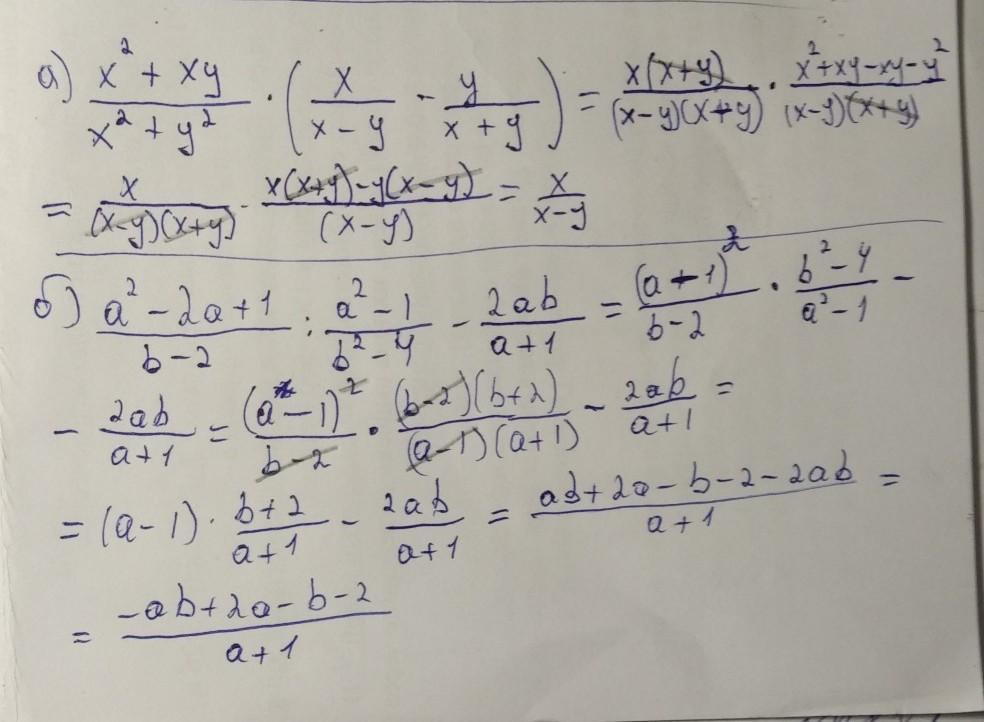 а) (x² + xy)/(x² + y²) · (x/(x − y) − y/(x + y)) = x(x+y)/((x−y)(x+y)) · (x²+xy−xy−y²)/((x−y)(x+y))
= x/((x−y)(x+y)) · (x(x+y)−y(x−y))/(x−y) = x/(x−y)
б) (a² − 2a + 1)/(b − 2) : (a² − 1)/(b² − 4) − 2ab/(a + 1) = (a − 1)²/(b − 2) · (b² − 4)/(a² − 1) −
− 2ab/(a + 1) = (a − 1)²/(b − 2) · (b−2)(b+2)/((a−1)(a+1)) − 2ab/(a+1) =
= (a − 1) · (b + 2)/(a + 1) − 2ab/(a + 1) = (ab + 2a − b − 2 − 2ab)/(a + 1) =
= (−ab + 2a − b − 2)/(a + 1)